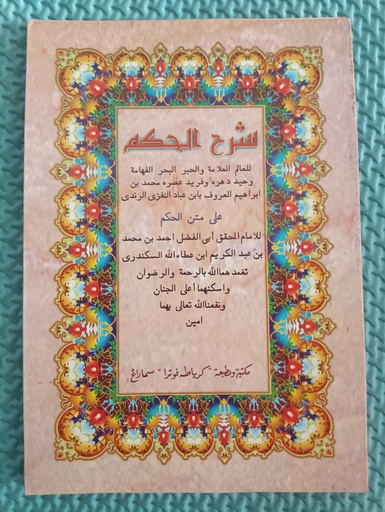 شرح الحكم
للعالم العلامة والحبر البحر الفهامة
وحيد دهره وفريد عصره محمد بن
ابراهيم المعروف بابن عباد النفزي الرندى
على متن الحكم
للامام المحقق أبى الفضل احمد بن محمد
بن عبد الكريم ابن عطاءالله السكندرى
تغمدهماالله بالرحمة والرضوان
واسكنهما أعلى الجنان
ونفعناالله تعالى بهما
امين
مكتبة ومطبعة "كرياطه فوترا" سماراغ